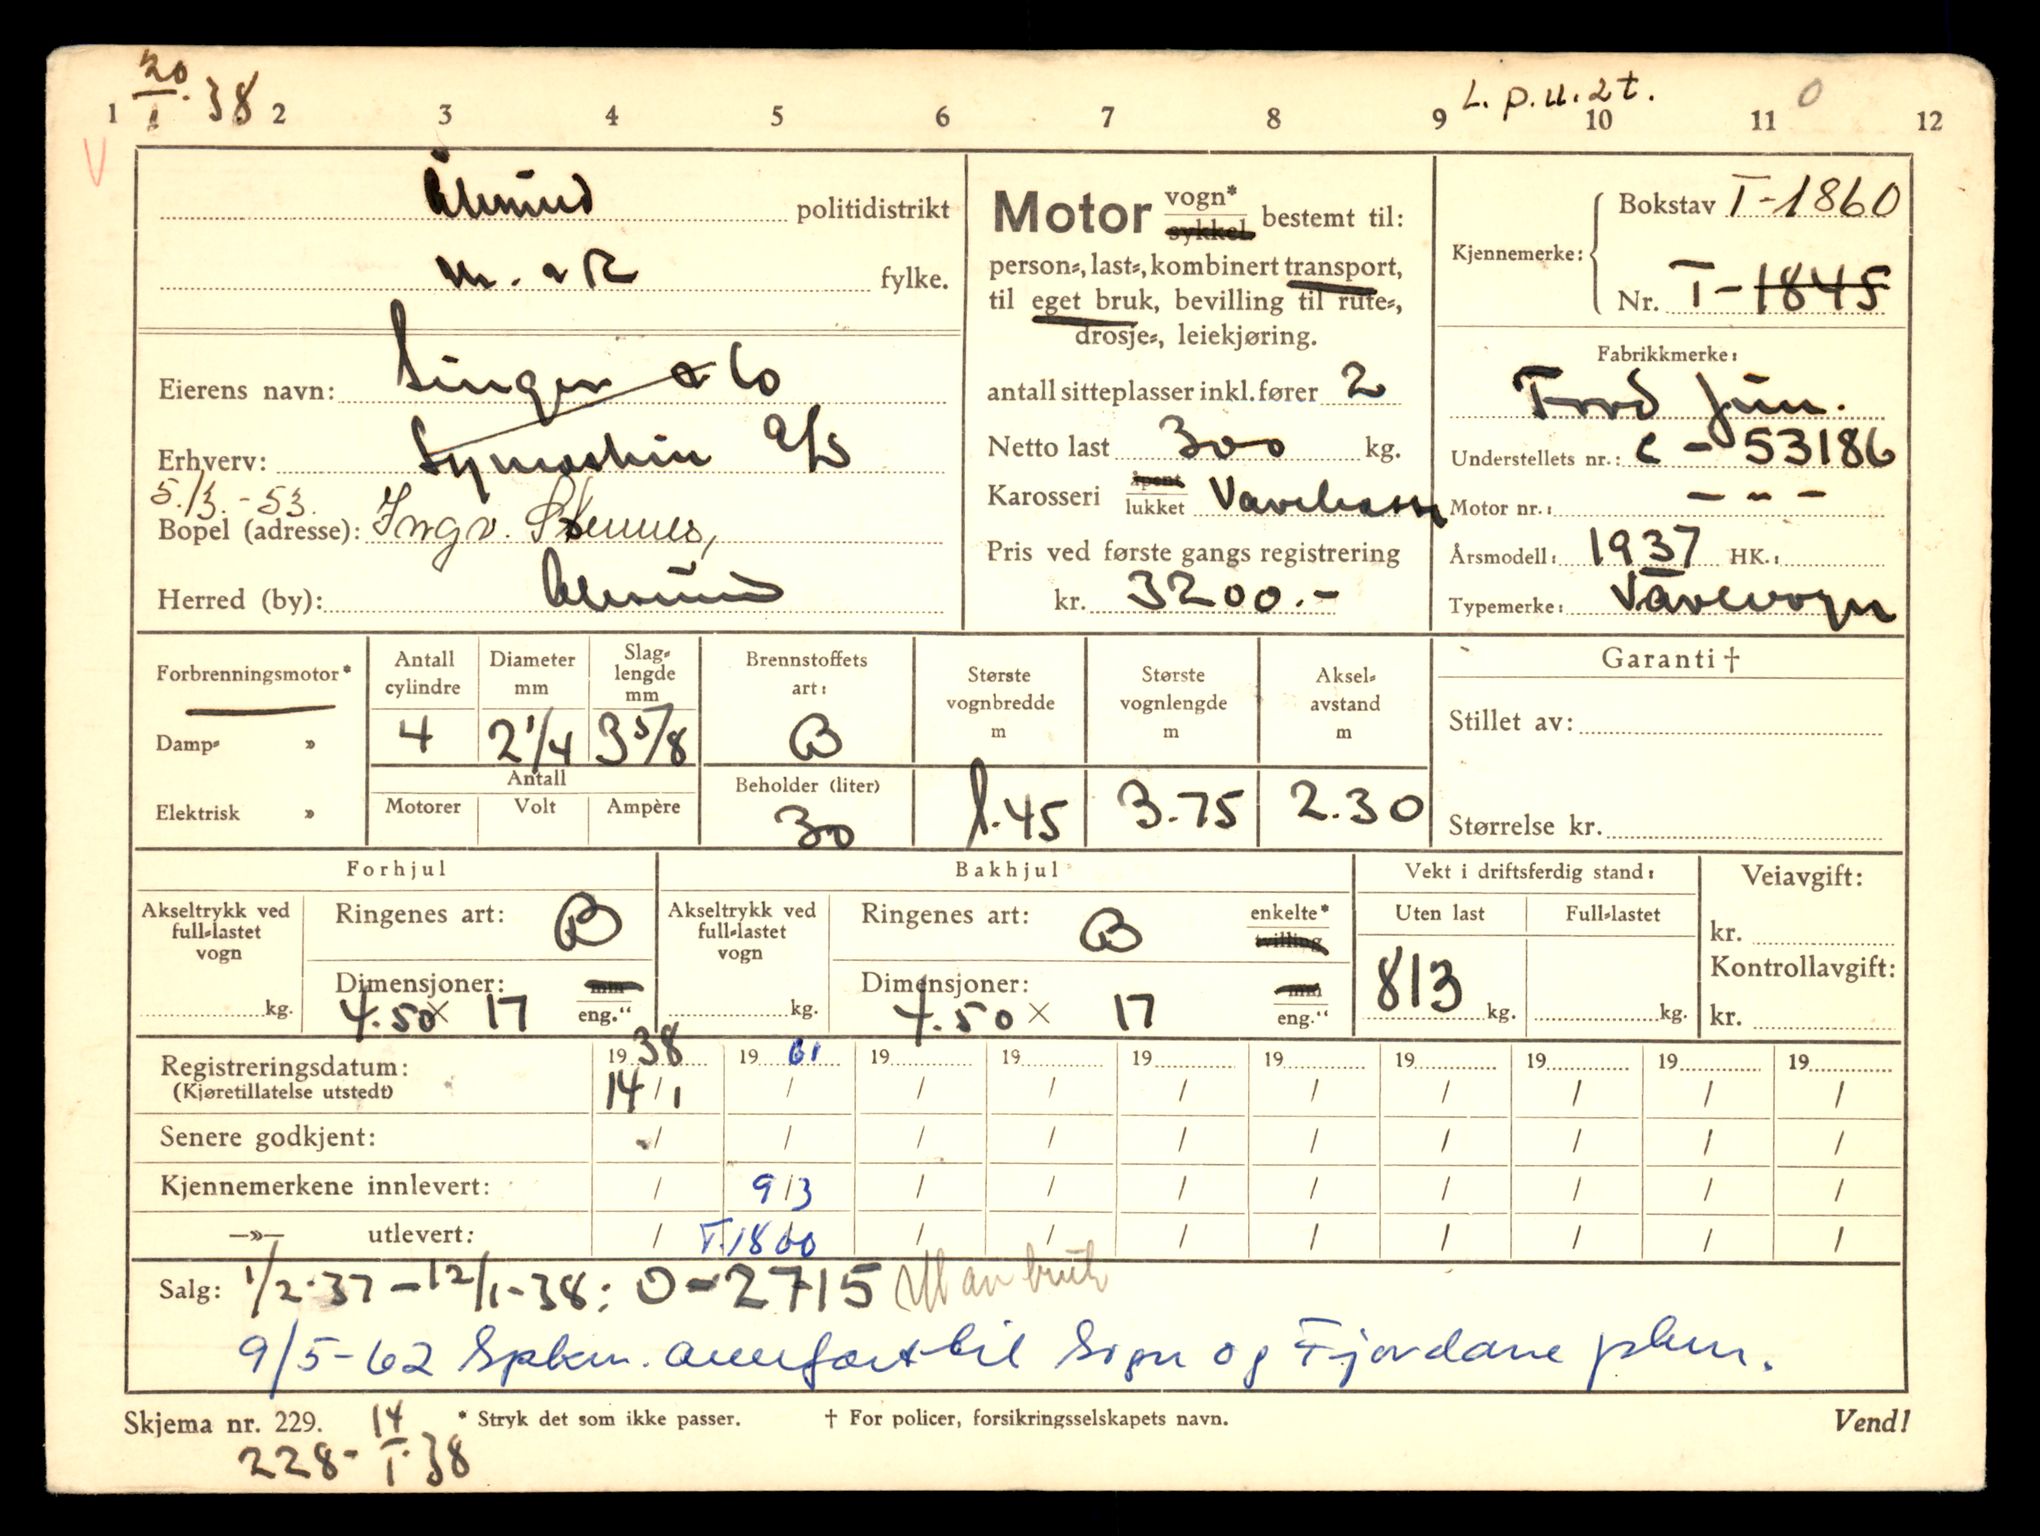 20/1. 38
L. p. u. 2t.
0
1 2 3 4 5 6 7 8 9 10 11 12
V
Ålesund politidistrikt
M. o R fylke.
Eierens navn: Singer & Co
Erhverv: Symaskin A/S
5./3. - 53.
Bopel (adresse): Ingv. Stennes,
Herred (by): Ålesund
Motor vogn* sykkel bestemt til:
person-, last-, kombinert transport,
til eget bruk, bevilling til rute-,
drosje-, leiekjøring.
antall sitteplasser inkl. fører 2
Netto last 300 kg.
Karosseri åpent lukket Varekasse
Pris ved første gangs registrering
kr. 3200.-
Kjennemerke: Bokstav T-1860
Nr. T-1845
Fabrikkmerke:
Ford Jun.
Understellets nr.: C - 53186
Motor nr.: — „ —
Årsmodell: 1937 HK.:
Typemerke: Varevogn
Forbrenningsmotor*
Damp- »
Elektrisk »
Antall cylindre 4
Diameter mm 2 1/4
Slag-lengde mm 3 5/8
Antall
Motorer Volt Ampère
Brennstoffets art: B
Beholder (liter) 30
Største vognbredde m 1.45
Største vognlengde m 3.75
Aksel-avstand m 2.30
Garanti †
Stillet av:
Størrelse kr.
Forhjul
Akseltrykk ved full-lastet vogn kg.
Ringenes art: B
Dimensjoner: 4.50 × 17 mm eng."
Bakhjul
Akseltrykk ved full-lastet vogn kg.
Ringenes art: B enkelte* tvilling
Dimensjoner: 4.50 × 17 mm eng."
Vekt i driftsferdig stand:
Uten last 813 kg.
Full-lastet kg.
Veiavgift:
kr.
Kontrollavgift:
kr.
Registreringsdatum: 1938 1961 19 19 19 19 19 19 19 19
(Kjøretillatelse utstedt) 14/1 / / / / / / / / /
Senere godkjent: / / / / / / / / / /
Kjennemerkene innlevert: / 9/3 / / / / / / / /
—»— utlevert: / T.1860 / / / / / / / /
Salg: 1/2-37 - 12/1-38: O-2715 Ut av bruk
9/5-62 Spkm. overført til Sogn og Fjordane pkm.
Skjema nr. 229. * Stryk det som ikke passer. † For policer, forsikringsselskapets navn. Vend!
228- 14/1. 38